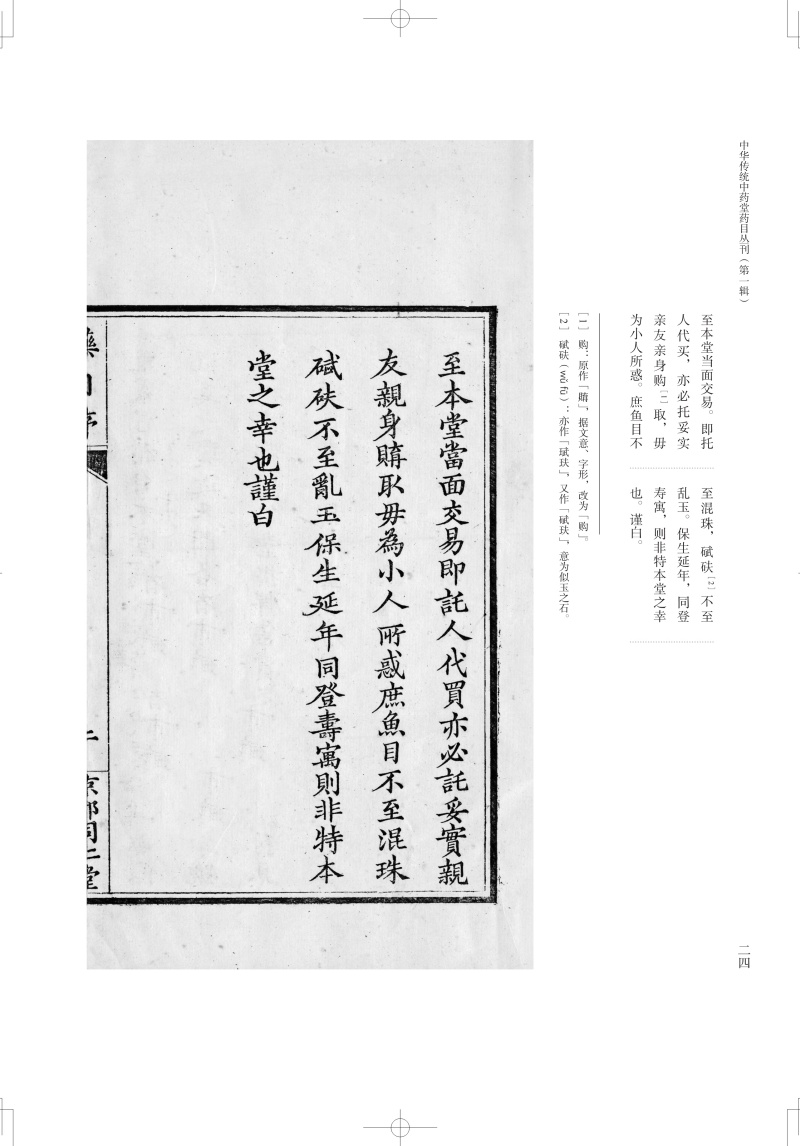 中华传统中药堂药目丛刊（第一辑）
二四
至本堂当面交易。即托
人代买，亦必托妥实
亲友亲身购［一］取，毋
为小人所惑。庶鱼目不
至混珠，碔砆［2］不至
乱玉。保生延年，同登
寿寓，则非特本堂之幸
也。谨白。
［1］ 购：原作「賭」，据文意、字形，改为「购」。
［2］ 碔砆（wǔ fū）：亦作「珷玞」，又作「碔玞」，意为似玉之石。
至本堂當面交易即託人代買亦必託妥實親
友親身購取毋為小人所惑庶魚目不至混珠
碔砆不至亂玉保生延年同登壽寓則非特本
堂之幸也謹白
藥目序
二
京都同仁堂